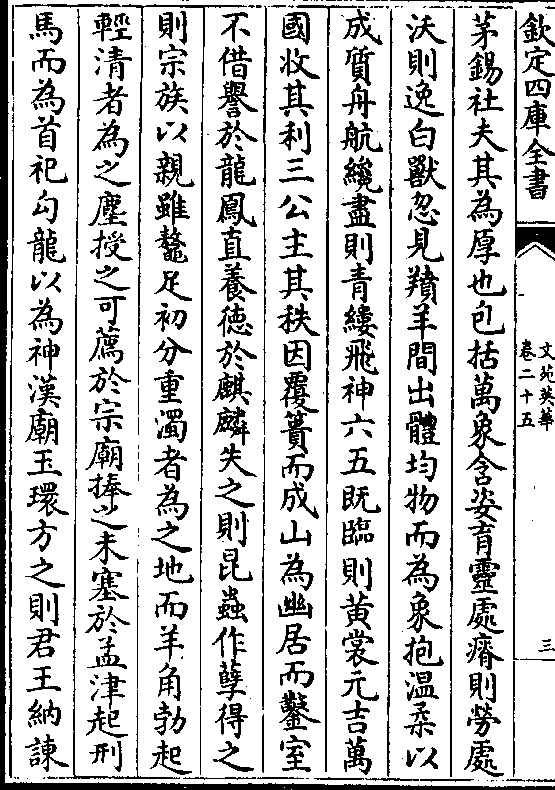 欽定四庫全書
文苑英華
卷二十五
三
茅錫社夫其為厚也包括萬象含姿育靈處瘠則勞處
沃則逸白獸忽見羵羊間出體均物而為象抱温柔以
成質舟航纔盡則青縷飛神六五既臨則黄裳元吉萬
國收其利三公主其秩因覆簣而成山為幽居而鑿室
不借譽於龍鳳直養徳於麒麟失之則昆蟲作孽得之
則宗族以親雖鼇足初分重濁者為之地而羊角勃起
輕清者為之塵授之可薦於宗廟捧之未塞於孟津起刑
馬而為首祀勾龍以為神漢廟玉環方之則君王納諫